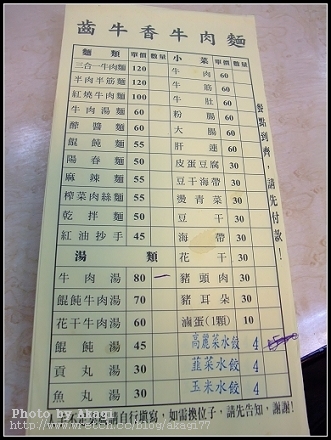 齒牛香牛肉麵
麵類 單價 數量 小菜 單價 數量
三合一牛肉麵 120 牛肉 60
半肉半筋麵 120 牛筋 60
紅燒牛肉麵 100 牛肚 60
牛肉湯麵 60 粉腸 60
酢醬麵 60 大腸 60
餛飩麵 55 肝連 60
陽春麵 50 皮蛋豆腐 30
麻辣麵 55 豆干海帶 30
榨菜肉絲麵 55 燙青菜 30
乾拌麵 50 豆干 30
紅油抄手 45 海帶 30
湯類 花干 30
牛肉湯 80 一 豬頭肉 30
餛飩牛肉湯 70 豬耳朵 30
花干牛肉湯 60 滷蛋(1顆) 10
餛飩湯 45 高麗菜水餃 4
貢丸湯 30 韮菜水餃 4
魚丸湯 30 玉米水餃 4
餐點到齊，請先付款！
自行填寫，如需換位子，請先告知，謝謝!
Photo by Akagi
http://www.wretch.cc/blog/akagi77